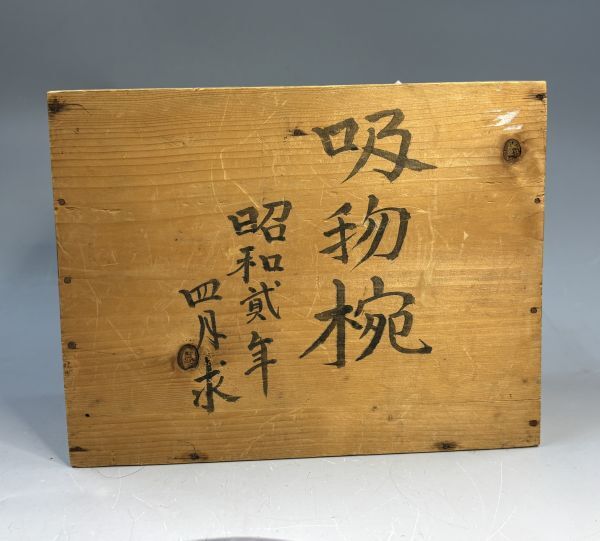 吸物椀
昭和貳年
四月求